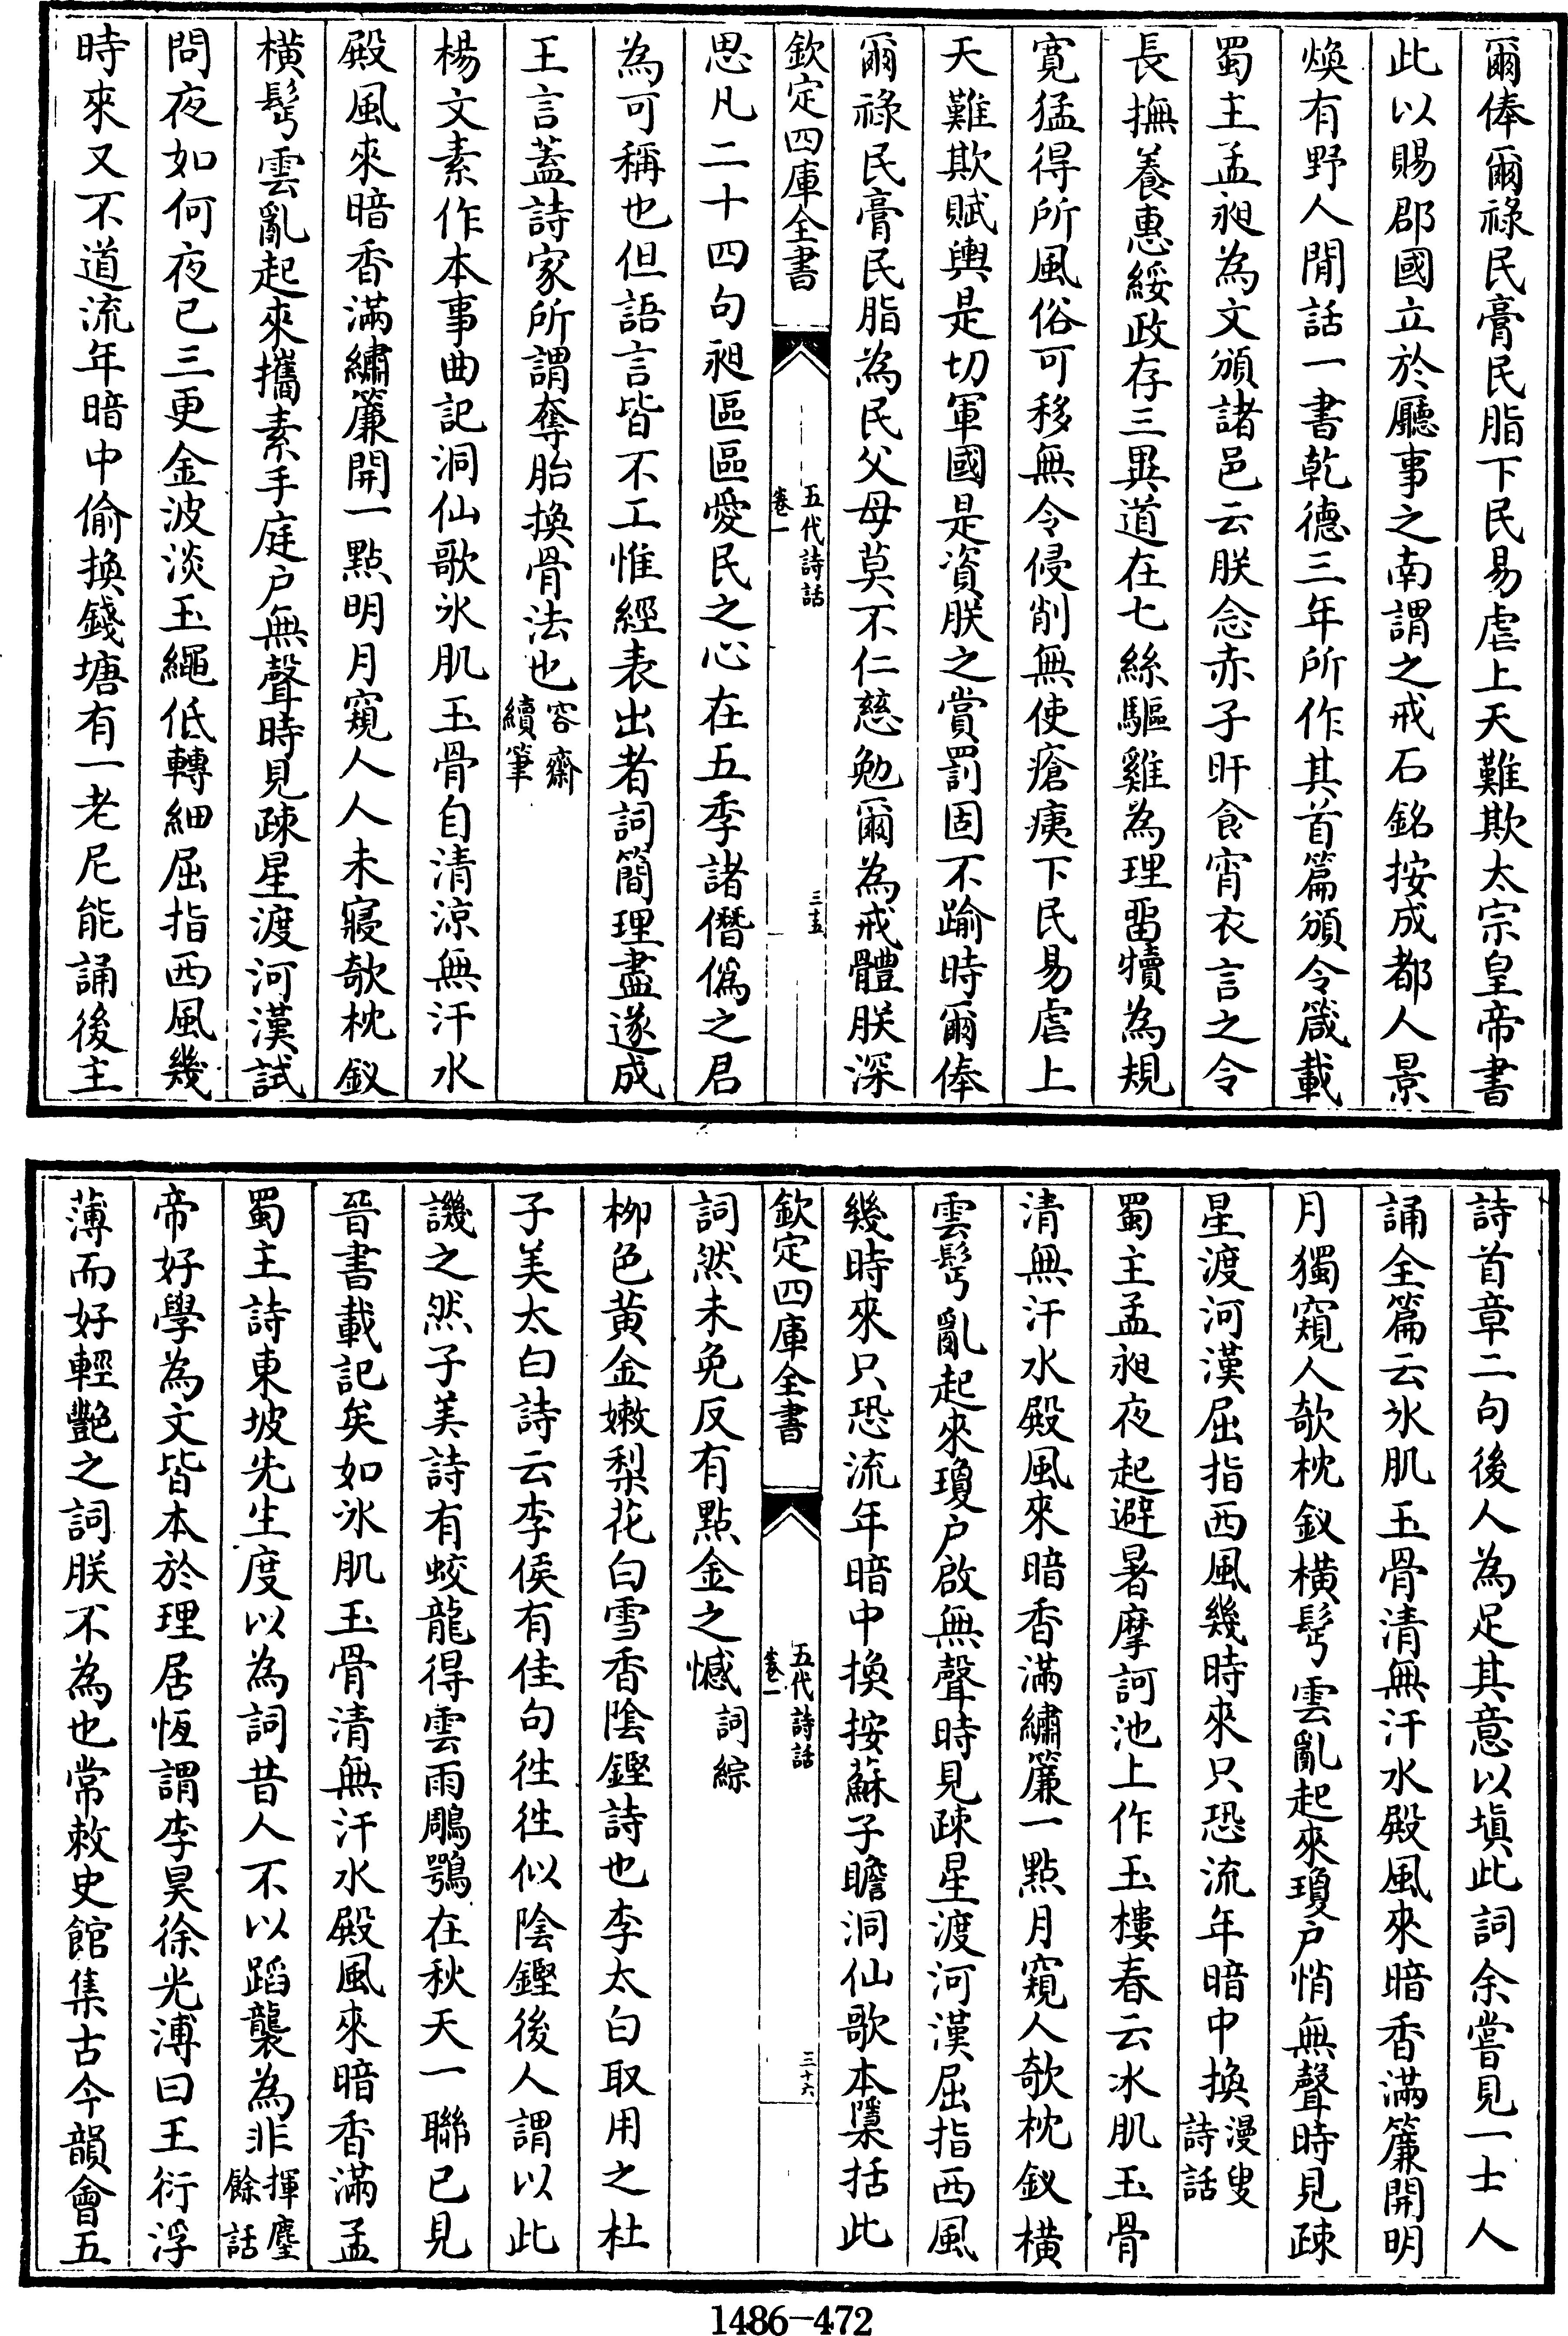 爾俸爾祿民膏民脂下民易虐上天難欺太宗皇帝書
此以賜郡國立於廳事之南謂之戒石銘按成都人景
煥有野人閒話一書乾德三年所作其首篇頒令箴載
蜀主孟昶為文頒諸邑云朕念赤子旰食宵衣言之令
長撫養惠綏政存三異道在七絲驅雞為理留犢為規
寬猛得所風俗可移無令侵削無使瘡痍下民易虐上
天難欺賦輿是切軍國是資朕之賞罰固不踰時爾俸
爾祿民膏民脂為民父母莫不仁慈勉爾為戒體朕深
欽定四庫全書
五代詩話
卷一
三十五
思凡二十四句昶區區愛民之心在五季諸僭偽之君
為可稱也但語言皆不工惟經表出者詞簡理盡遂成
王言蓋詩家所謂奪胎換骨法也容齋續筆
楊文素作本事曲記洞仙歌氷肌玉骨自清涼無汗水
殿風來暗香滿繡簾開一點明月窺人人未寢欹枕釵
橫髩雲亂起來攜素手庭户無聲時見疎星渡河漢試
問夜如何夜已三更金波淡玉繩低轉細屈指西風幾
時來又不道流年暗中偷換錢塘有一老尼能誦後主
詩首章二句後人為足其意以填此詞余嘗見一士人
誦全篇云氷肌玉骨清無汗水殿風來暗香滿簾開明
月獨窺人欹枕釵橫髩雲亂起來瓊户悄無聲時見疎
星渡河漢屈指西風幾時來只恐流年暗中換漫叟詩話
蜀主孟昶夜起避暑摩訶池上作玉樓春云氷肌玉骨
清無汗水殿風來暗香滿繡簾一點月窺人欹枕釵橫
雲髩亂起來瓊户啟無聲時見疎星渡河漢屈指西風
幾時來只恐流年暗中換按蘇子瞻洞仙歌本檃括此
欽定四庫全書
五代詩話
卷一
三十六
詞然未免反有點金之憾詞綜
柳色黃金嫩梨花白雪香陰鏗詩也李太白取用之杜
子美太白詩云李侯有佳句徃徃似陰鏗後人謂以此
譏之然子美詩有蛟龍得雲雨鵰鶚在秋天一聯已見
晉書載記矣如氷肌玉骨清無汗水殿風來暗香滿孟
蜀主詩東坡先生度以為詞昔人不以蹈襲為非揮麈餘話
帝好學為文皆本於理居恆謂李昊徐光溥曰王衍浮
薄而好輕艷之詞朕不為也常敕史館集古今韻會五
1486-472